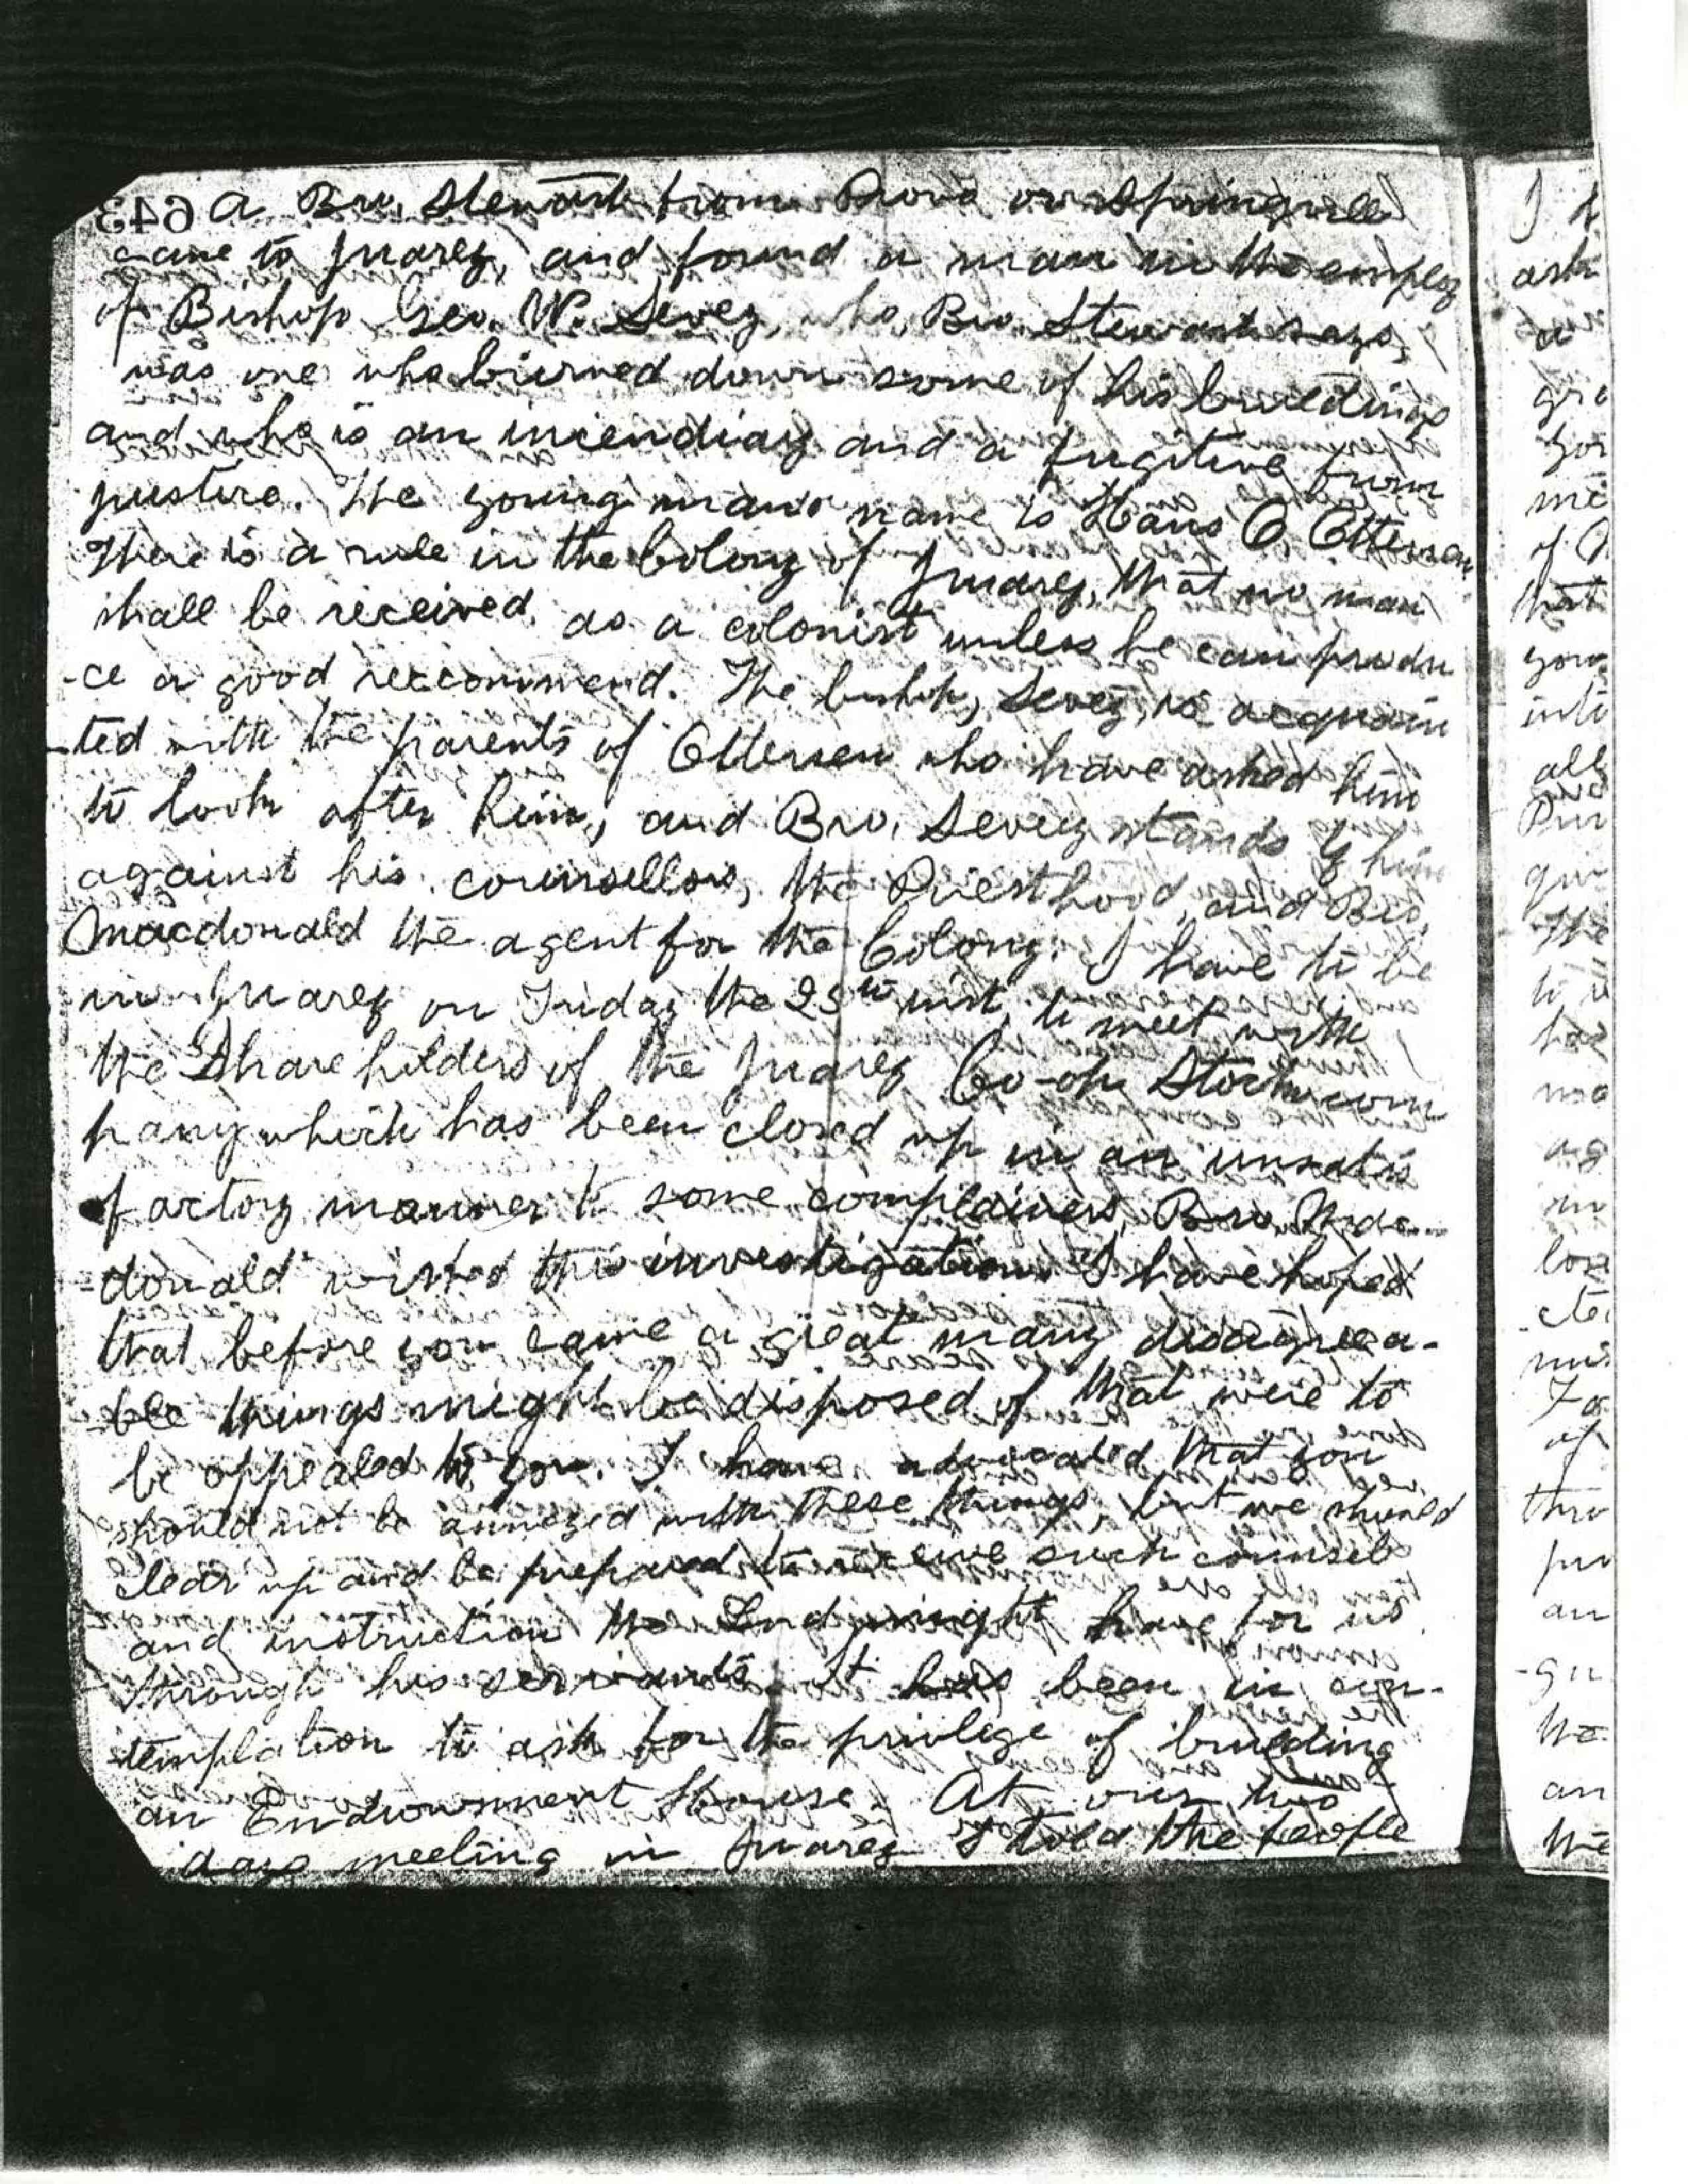 643 A Bro. Stewart from Provo or Springville
came to Juarez, and found a man in the employ
of Bishop Geo. W. Sevey, who, Bro. Stewart says,
was one who burned down some of his buildings
and who is an incendiary and a fugitive from
justice. The young man's name is Hans O Ottersen
There is a rule in the Colony of Juarez, that no man
shall be received as a colonist unless he can produ
-ce a good reccommend. The bishop, Sevey, is acquain
-ted with the parents of Ottersen who have asked him
to look after him, and Bro. Sevey stands by him
against his counsellors, the Priesthood, and Bro.
Macdonald the agent for the Colony. I have to be
in Juarez on Friday the 25th inst, to meet with
the Share holders of the Juarez Co-op Stock com
pany which has been closed up in an unsatis
factory manner to some complainers, Bro. Mac-
-donald wished this investigation. I have hoped
that before you came a great many disagreea-
-ble things might be disposed of that were to
be appealed to you. I have advocated that you
should not be annoyed with these things, but we should
clear up and be prepared to receive such counsels
and instruction the Lord might have for us
through his servants. It has been in con-
templation to ask for the privilege of building
an Endownment House. At our two
days meeting in Juarez I told the people
I
ask
a
gre
for
me
of
that
you
into
all
the
to
has
mo
ag
in
los
of
thro
pr
an
-gu
the
an
the